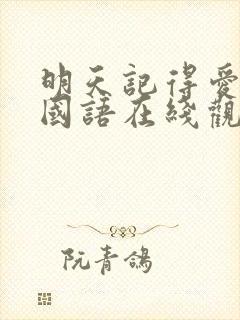 明天記得愛
國語在綫觀
阮青鴿